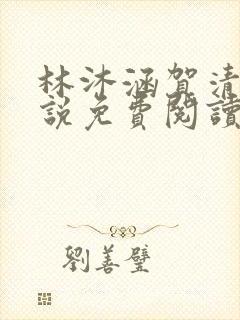 林沐涵賀清
說免費閱讀
劉善璧